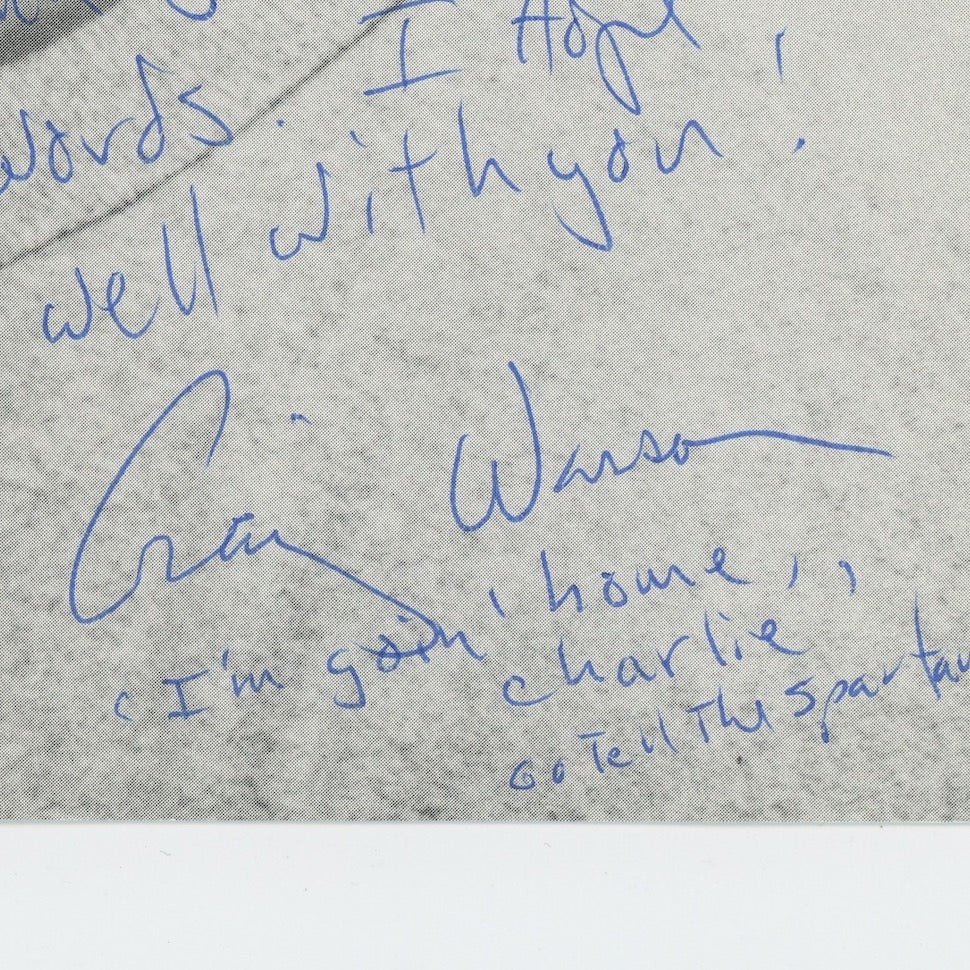 words. I Hope
well with you.
Craig Wasson
'I'm goin' home,
charlie''
Go Tell The Spartan